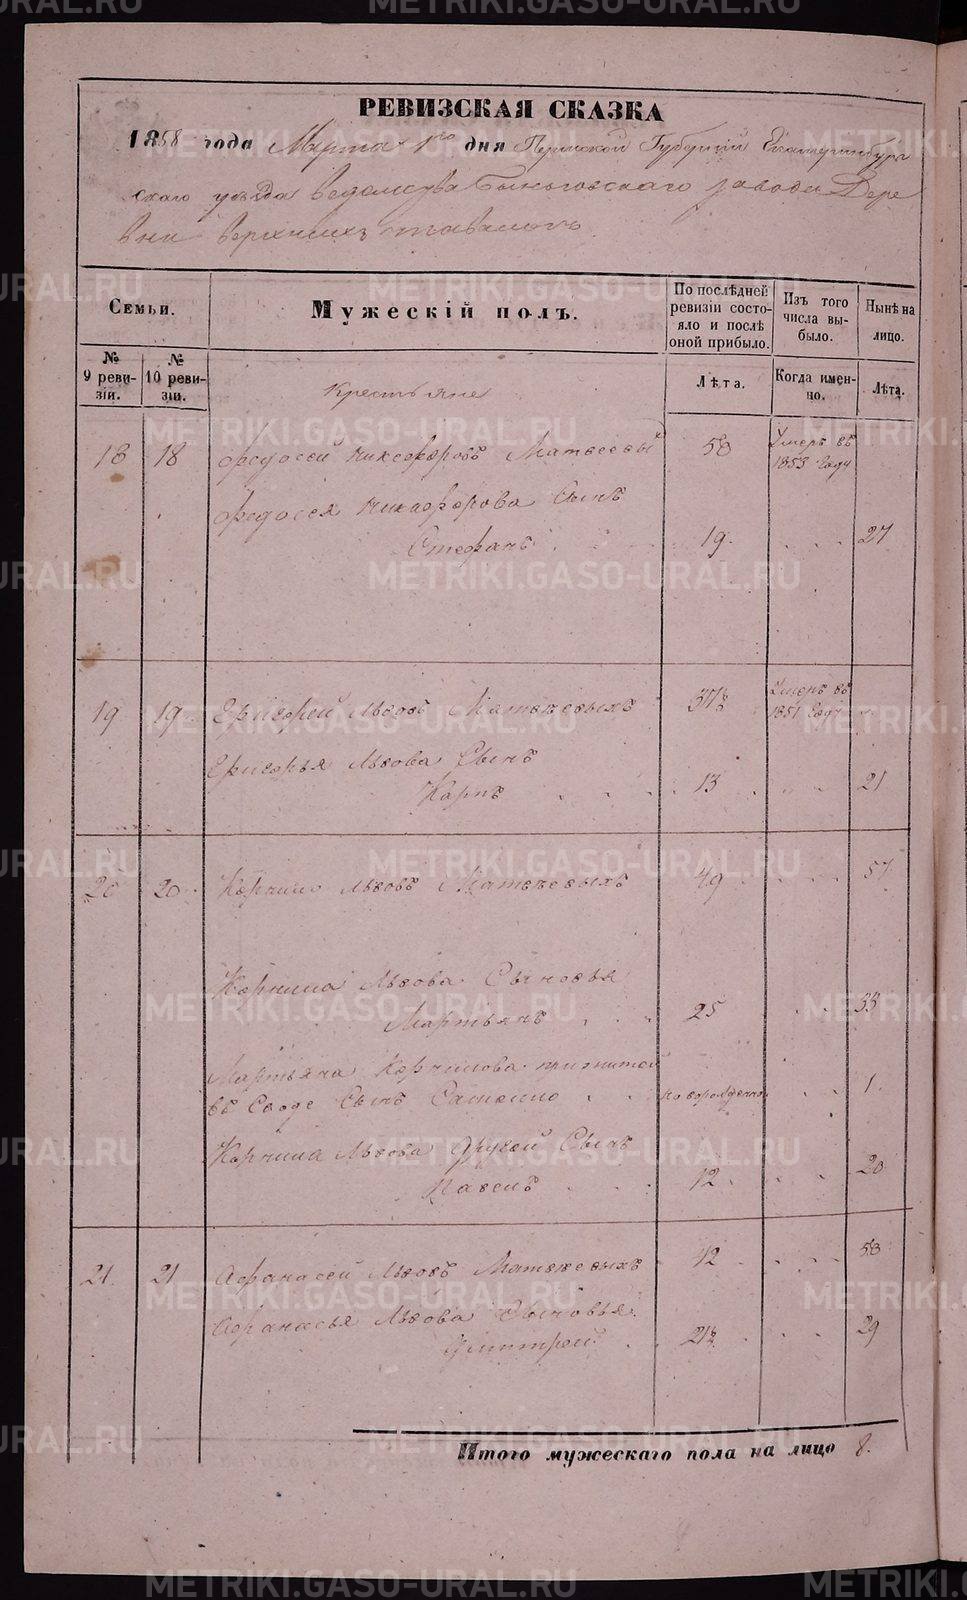 РЕВИЗСКАЯ СКАЗКА
1858 года Марта 1го дня Пермской Губерніи Екатеринбург
скаго уѣзда ведомства Быньговскаго завода Дере
вни верхнихъ тавологъ
Семьи.
Мужескій полъ.
По послѣдней ревизіи состояло и послѣ оной прибыло.
Изъ того числа выбыло.
Нынѣ на лицо.
№ 9 ревизіи.
№ 10 ревизіи.
Крестьяне
Лѣта.
Когда именно.
Лѣта.
18 18 Федосей Никефоровъ Матвеевы 58 Умеръ въ 1853 году
Федосея Никифорова Сынъ
Стефанъ 19 27
19 19 Григорей Львовъ Матвѣевыхъ 37½ Умеръ въ 1851 году
Григорья Львова Сынъ
Карпъ 13 21
20 20 Корнило Львовъ Матвѣевыхъ 49 57
Корнила Львова Сыновья
Мартьянъ 25 33
Мартьяна Корнилова прижитой
въ Сводѣ Сынъ Самойло новорожденной 1
Корнила Львова другой Сынъ
Павелъ 12 20
21 21 Афанасей Львовъ Матвѣевыхъ 42 50
Афанасья Львова Сыновья
Дмитрей 21½ 29
Итого мужескаго пола на лицо 8.
METRIKI.GASO-URAL.RU